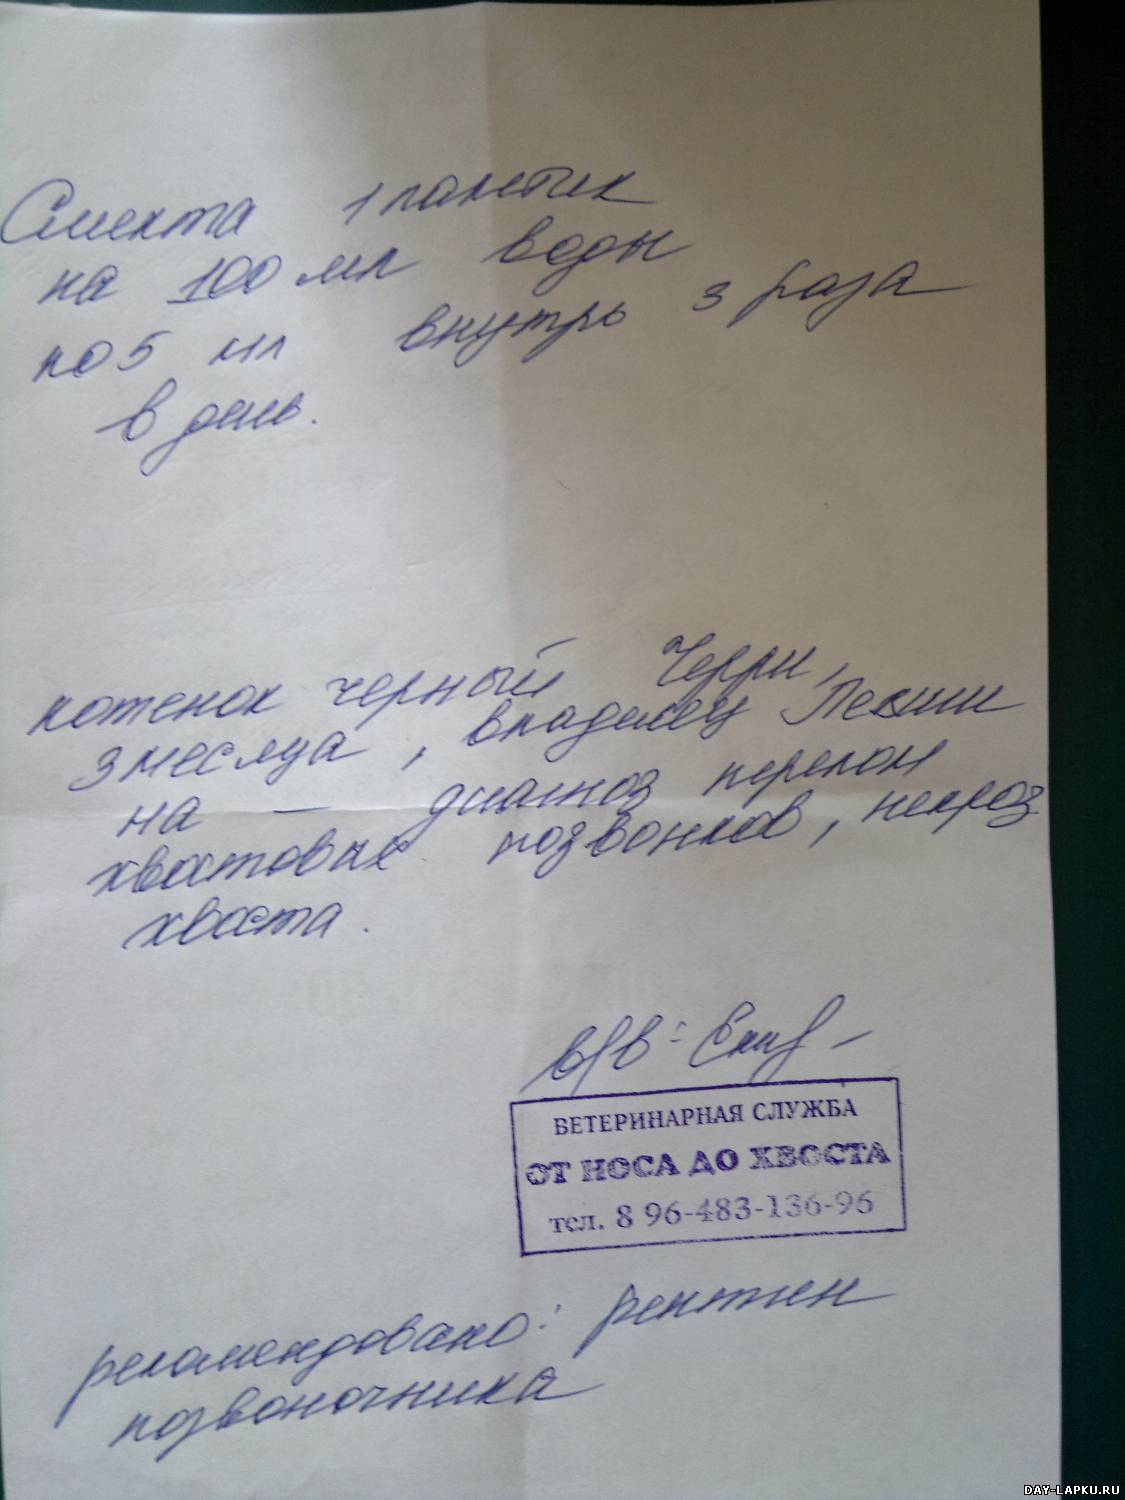 Смекта 1 пакетик
на 100 мл воды
по 5 мл внутрь 3 раза
в день.
котенок черный Черри,
3 месяца, владелец
на — диагноз перелом
хвостовых позвонков, некроз
хвоста.
в/в:
ВЕТЕРИНАРНАЯ СЛУЖБА
ОТ НОСА ДО ХВОСТА
тел. 8 96-483-136-96
рекомендовано: рентген
позвоночника
DAY-LAPKU.RU